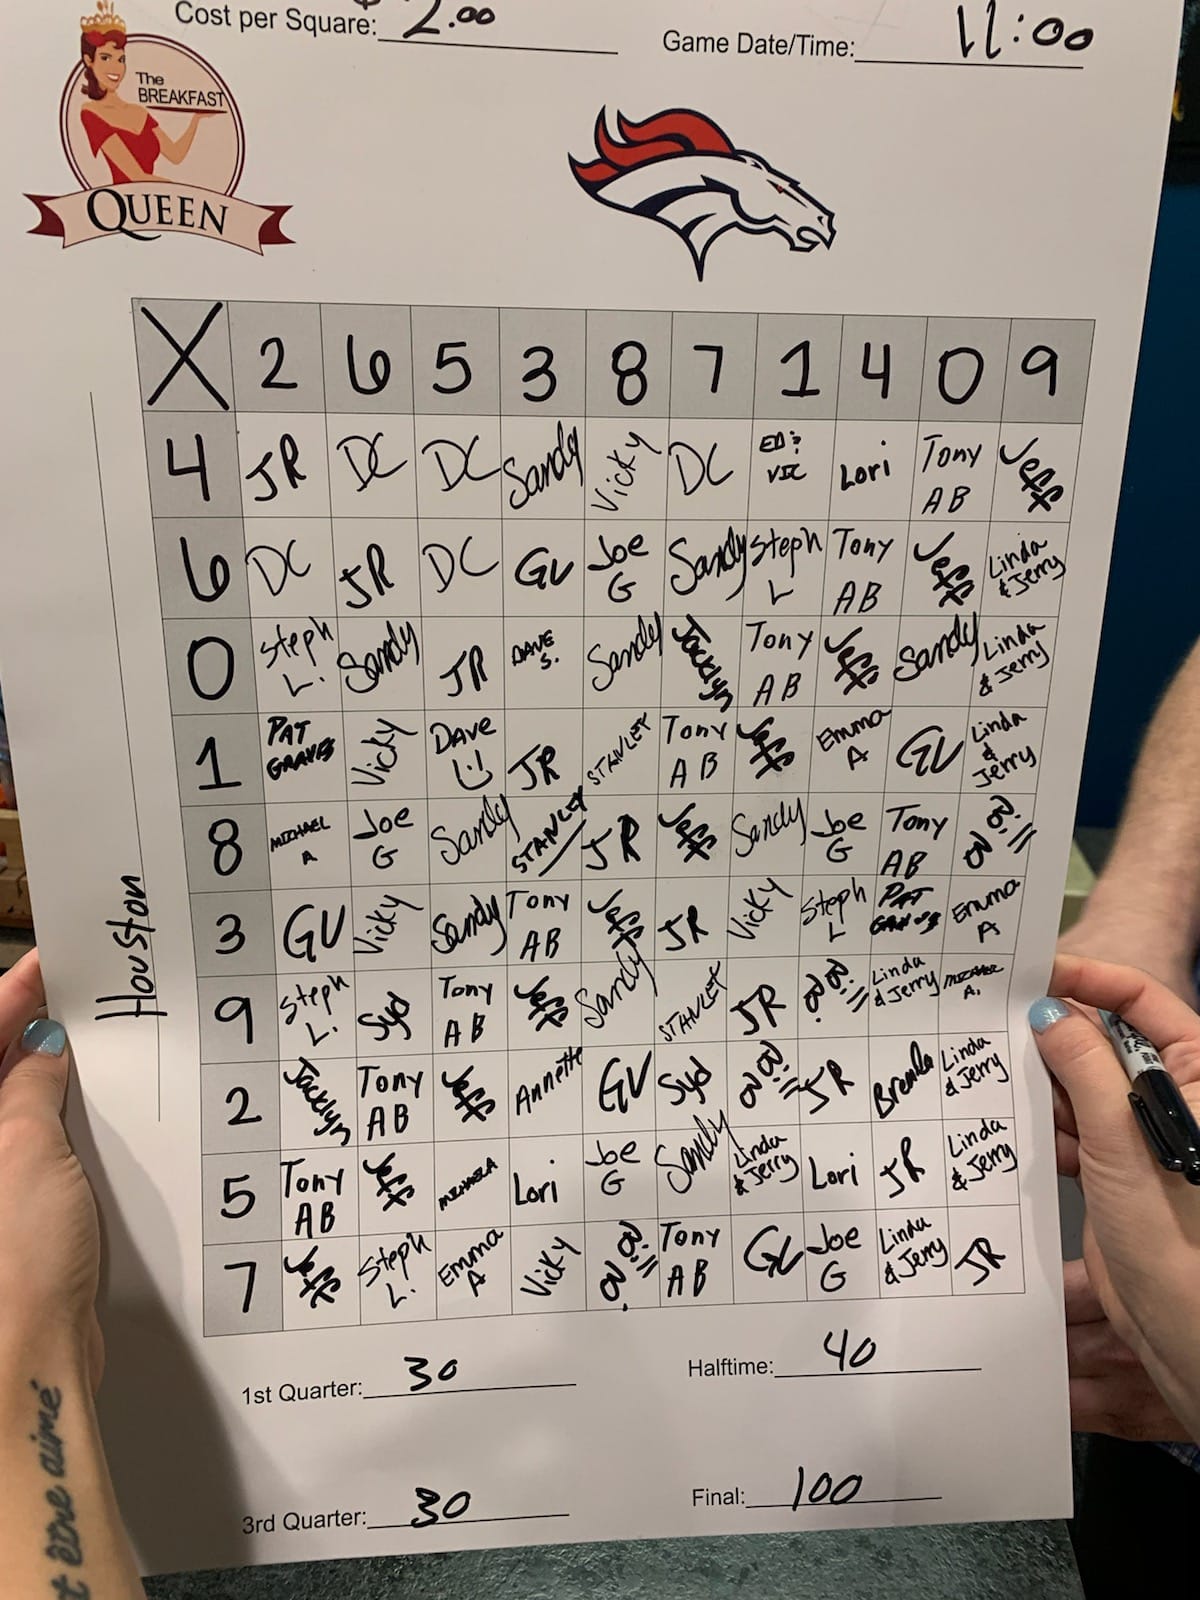 Cost per Square: $2.00
Game Date/Time: 11:00
The
BREAKFAST
QUEEN
Houston
X 2 6 5 3 8 7 1 4 0 9
4 JR DC DC Sandy Vicky DC ED & VIC Lori Tony AB Jeff
6 DC JR DC GV Joe G Sandy Steph L Tony AB Jeff Linda & Jerry
0 Steph L. Sandy JR DAVE S. Sandy Jacklyn Tony AB Jeff Sandy Linda & Jerry
1 PAT GRAVES Vicky Dave JR STANLEY Tony AB Jeff Emma A GV Linda & Jerry
8 MICHAEL A Joe G Sandy STANLEY JR Jeff Sandy Joe G Tony AB
3 GV Vicky Sandy Tony AB Jeff JR Vicky Steph L PAT GRAVES Emma A
9 Steph L. Syd Tony AB Jeff Sandy STANLEY JR Linda & Jerry MICHAEL A.
2 Jacklyn Tony AB Jeff Annette GV Syd JR Brenda Linda & Jerry
5 Tony AB Jeff MICHAEL A Lori Joe G Sandy Linda & Jerry Lori JR Linda & Jerry
7 Jeff Steph L. Emma A Vicky Tony AB GV Joe G Linda & Jerry JR
1st Quarter: 30
Halftime: 40
3rd Quarter: 30
Final: 100
t être aimé